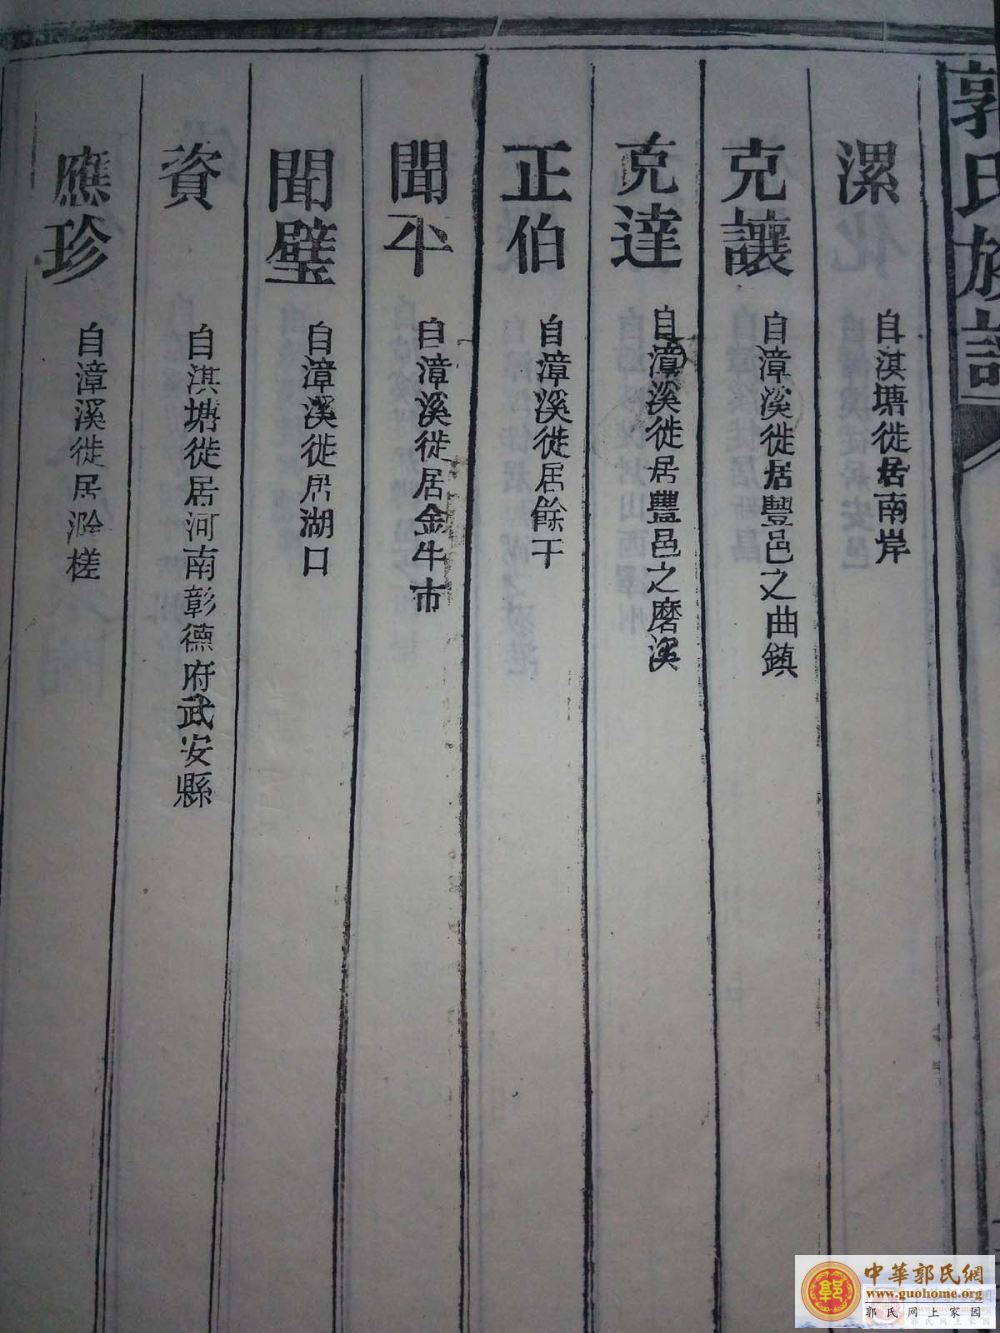 郭氏族譜
漯 自淇塘徙居南岸
克讓 自漳溪徙居豐邑之曲鎮
克達 自漳溪徙居豐邑之磨溪
正伯 自漳溪徙居餘干
聞 自漳溪徙居金牛市
聞璧 自漳溪徙居湖口
資 自淇塘徙居河南彰德府武安縣
應珍 自漳溪徙居槎
中華郭氏網
www.guohome.org
郭氏网上家园
郭